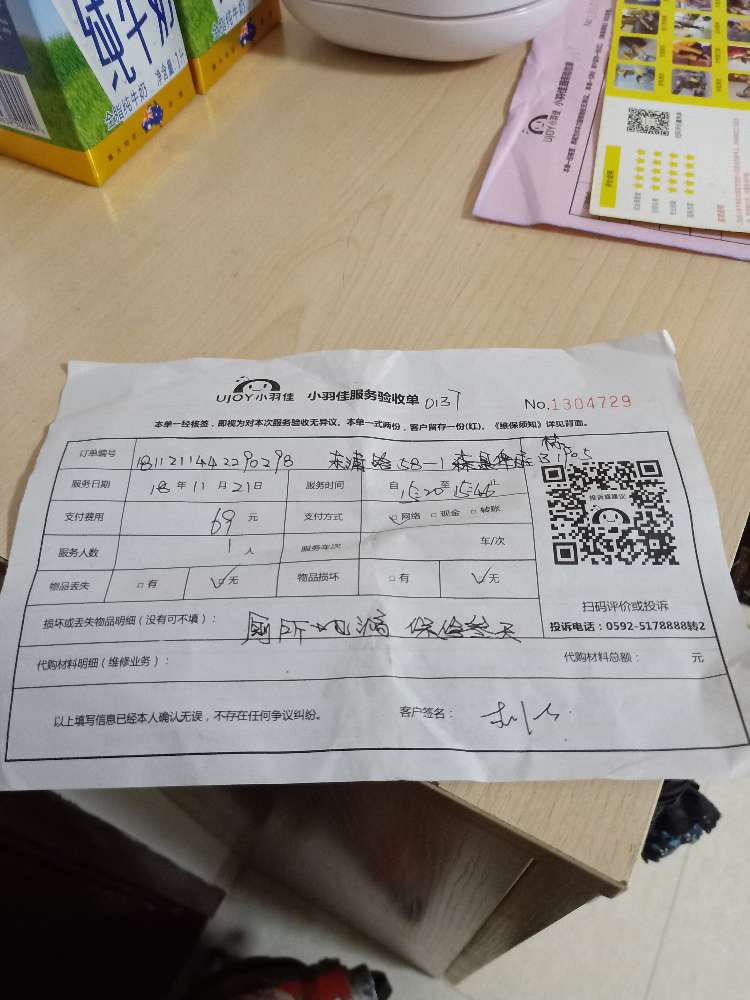 纯牛奶
全脂纯牛奶 净含量
UJOY小羽佳
UJOY小羽佳 小羽佳服务验收单 0137 No.1304729
本单一经核签，即视为对本次服务验收无异议。本单一式两份，客户留存一份(红)，《维保须知》详见背面。
订单编号 1811211442290298 东浦路58-1
服务日期 18年11月21日 服务时间 自15:20至15:46
支付费用 69元 支付方式 网络 现金 转账
服务人数 1人 服务车次 车/次
物品丢失 有 无 物品损坏 有 无
投诉或建议
扫码评价或投诉
投诉电话：0592-5178888转2
损坏或丢失物品明细（没有可不填）： 厕所地漏
代购材料明细（维修业务）： 代购材料总额： 元
以上填写信息已经本人确认无误，不存在任何争议纠纷。 客户签名：